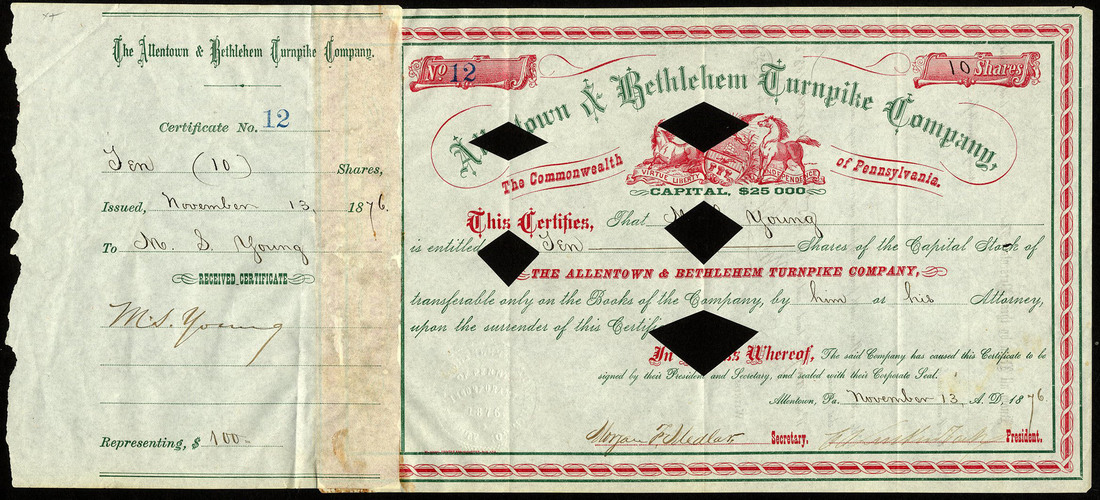 The Allentown & Bethlehem Turnpike Company.
Certificate No. 12
Ten (10) Shares,
Issued, November 13, 1876.
To M. S. Young
RECEIVED CERTIFICATE
M. S. Young
Representing, $ 100-
No 12
10 Shares
Allentown & Bethlehem Turnpike Company,
The Commonwealth of Pennsylvania.
VIRTUE LIBERTY INDEPENDENCE
CAPITAL, $25 000
This Certifies, That M. Young
is entitled Ten Shares of the Capital Stock of
THE ALLENTOWN & BETHLEHEM TURNPIKE COMPANY,
transferable only on the Books of the Company, by him or his Attorney,
upon the surrender of this Certifi
In Whereof, The said Company has caused this Certificate to be
signed by their President and Secretary, and sealed with their Corporate Seal.
Allentown, Pa. November 13, A. D. 1876.
1876
Morgan F. Medlar Secretary. President.